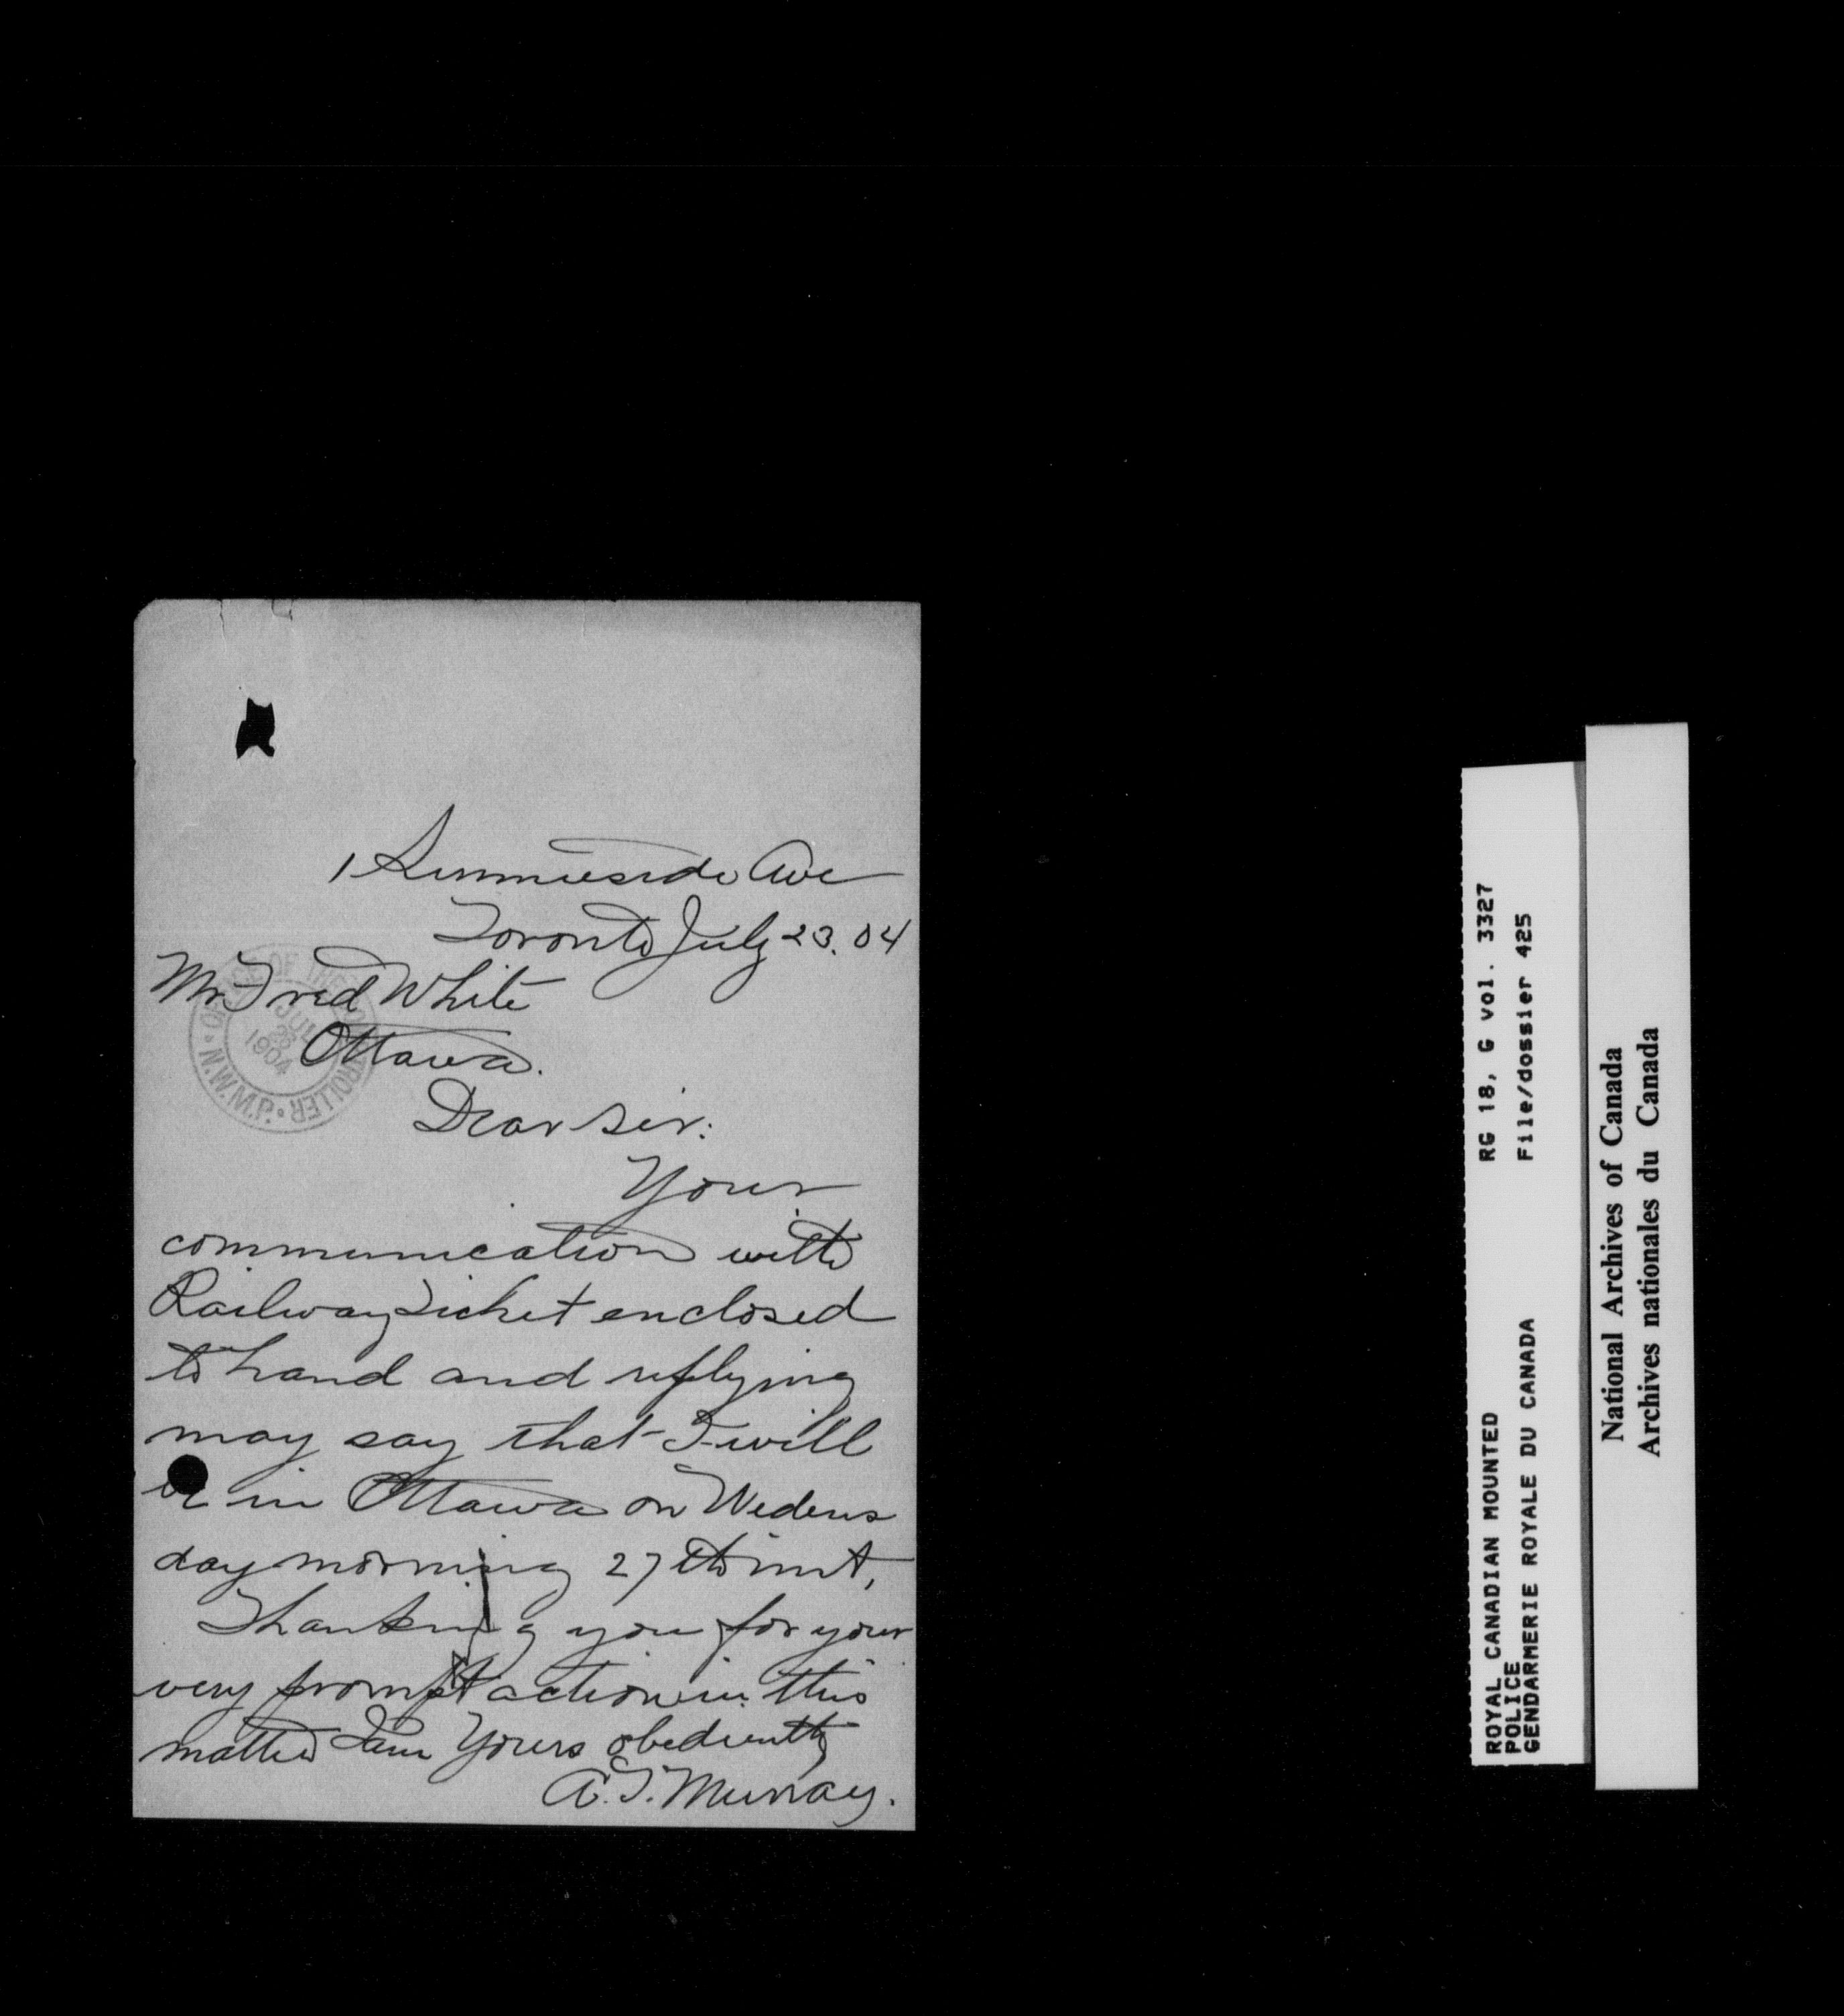 1 Sunnieside Ave
Toronto July 23. 04
Mr Fred White
Ottawa.
Dear Sir:
Your
communication with
Railway Ticket enclosed
to hand and replying
may say that I will
be in Ottawa on Wedens
day morning 27th inst,
Thanking you for your
very prompt action in this
matter I am Yours obediently
A. T. Murray.
OFFICE OF THE COMPTROLLER • N.W.M.P. •
JUL
1904
ROYAL CANADIAN MOUNTED
POLICE
GENDARMERIE ROYALE DU CANADA
RG 18, G vol. 3327
File/dossier 425
National Archives of Canada
Archives nationales du Canada